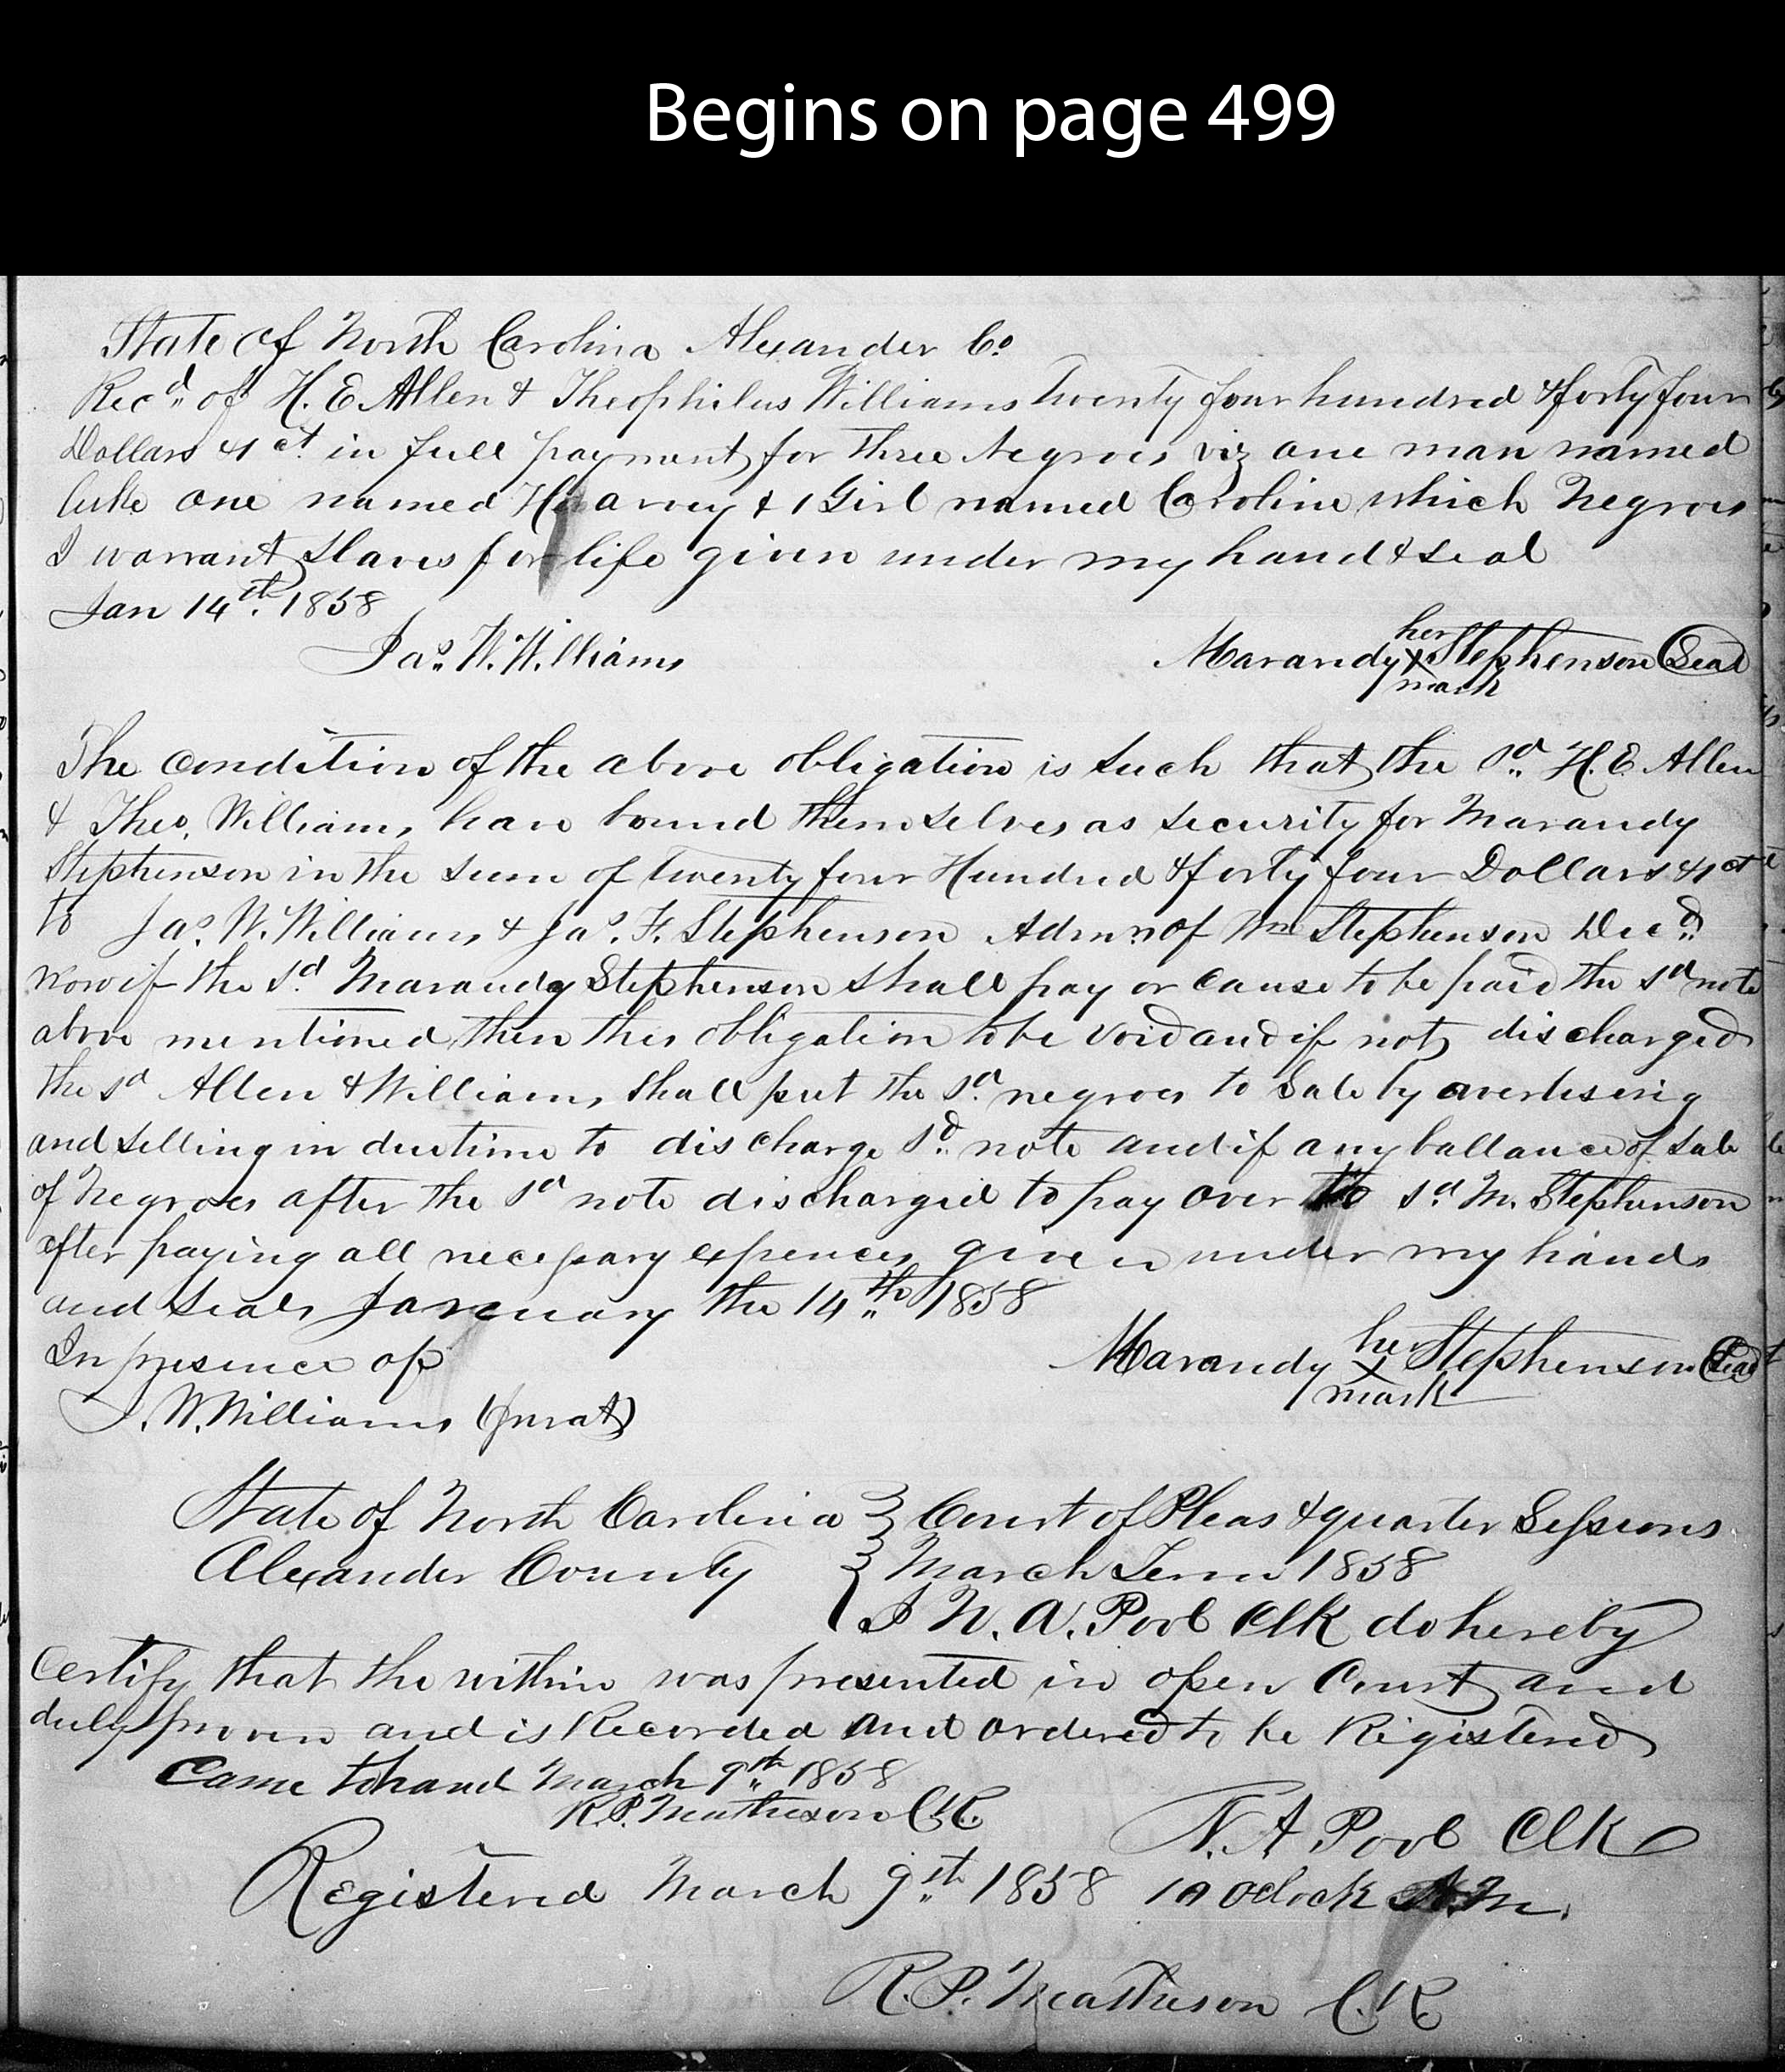 Begins on page 499
State of North Carolina Alexander Co
Recd. of H. E. Allen & Theophilus Williams Twenty four hundred & forty four
Dollars 41 ct. in full payment for three Negroes viz one man named
Luke one named Harvey & 1 Girl named Caroline which Negroes
I warrant slaves for life given under my hand & seal
Jan 14th. 1858
Jas. W. Williams
Marandy her X mark Stephenson Seal
The condition of the above obligation is such that the sd. H. E. Allen
& Theo. Williams have bound themselves as security for Marandy
Stephenson in the sum of twenty four Hundred & forty four Dollars 41 ct
to Jas. W. Williams & Jas. F. Stephenson Admn of Wm Stephenson Decd.
now if the sd. Marandy Stephenson shall pay or cause to be paid the sd note
above mentioned then this obligation to be void and if not discharged
the sd Allen & Williams shall put the sd. negroes to sale by avertising
and selling in due time to discharge sd. note and if any ballance of sale
of Negroes after the sd note discharged to pay over to sd. M. Stephenson
after paying all necessary expences given under my hands
and seals January the 14th 1858
In presence of
Marandy her X mark Stephenson Seal
J. W. Williams (Jurat)
State of North Carolina } Court of Pleas & quarter Sessions
Alexander County } March Term 1858
I N. A. Pool Clk do hereby
Certify that the within was presented in open Court and
duly proven and is Recorded and ordered to be Registered
Came to hand March 9th 1858
R. P. Matheson C.R.
N. A Pool Clk
Registered March 9st 1858 10 Oclock A.M.
R. P. Matheson C.R.